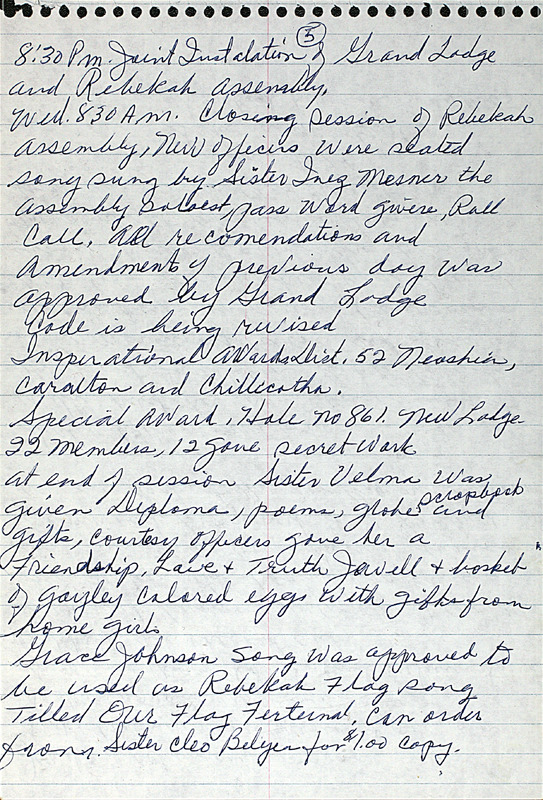 5
8:30 P.m. Joint Instalation of Grand Lodge
and Rebekah Assembly.
Wed. 8:30 A.m. Closing session of Rebekah
Assembly, New officers were seated
song sung by Sister Inez Mesner the
Assembly soloest, pass word givere, Roll
Call. All recomendations and
Amendments of previous day was
approved by Grand Lodge
Code is being revised
Inspirational Awards Dist. 52 Neoshier,
Caralton and Chillicotha.
Special Award, Hale no 861. New Lodge-
22 Members, 12 gave secret work
at end of session Sister Velma was
given Diploma, poems, globe scrapbook and
gifts, courtesy officers gave her a
Friendship, Love + Truth Jewell + basket
of gayley colored eggs with gifts from
home girls
Grace Johnson Song was approved to
be used as Rebekah Flag song
Titled Our Flag Ferternal, can order
from Sister Cleo Belyer for $1.00 copy.